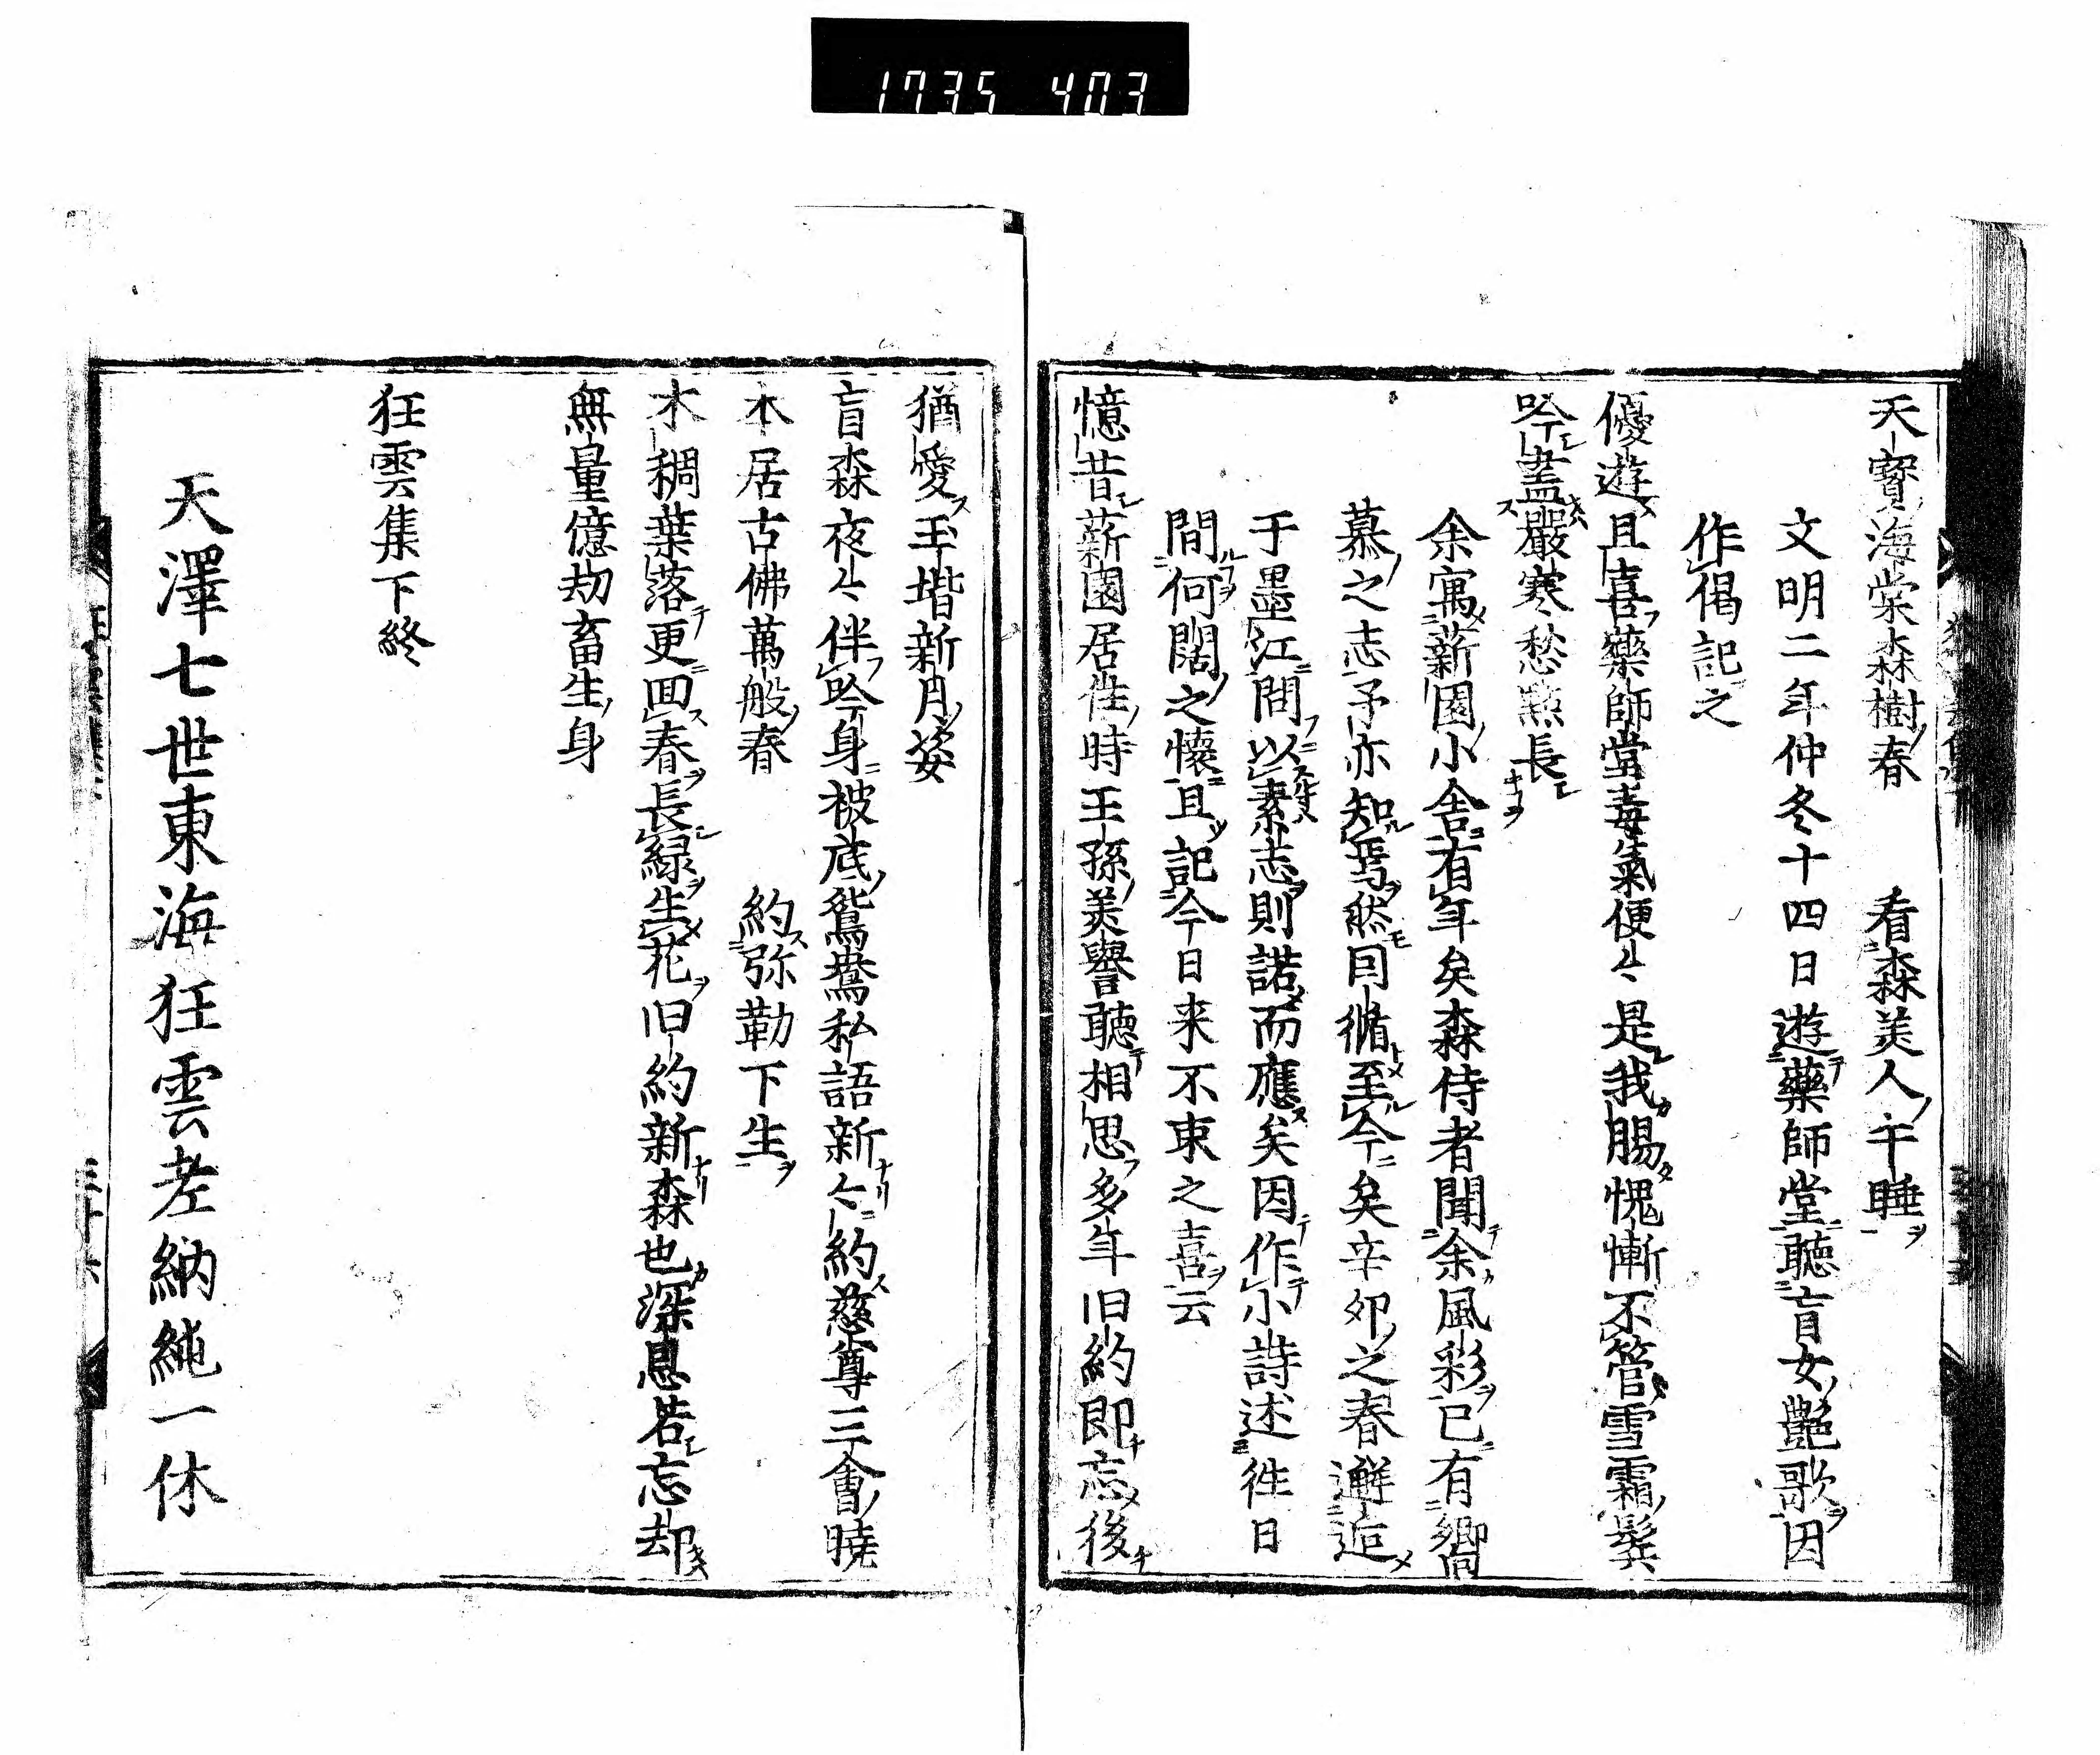 1735 403
天寶海棠森樹春　看森美人午睡
文明二年仲冬十四日遊藥師堂聽盲女艷歌因
作偈記之
優遊且喜藥師堂毒氣便々是我腸愧慚不管雪霜鬂
吟盡嚴寒愁點長
余寓薪園小舍有年矣森侍者聞余風彩已有嚮
慕之志予亦知焉然因循至今矣辛卯之春邂逅
于墨江問以素志則諾而應矣因作小詩述徃日
間何闊之懷且記今日来不束之喜云
憶昔薪園居住時王孫美譽聽相思多年旧約即忘後
猶愛玉堦新月姿
盲森夜々伴吟身被底鴛鴦私語新々約慈尊三會曉
本居古佛萬般春　約弥勒下生
木稠葉落更囬春長緑生花旧約新森也深恩若忘却
無量億劫畜生身
狂雲集下終
天澤七世東海狂雲老衲純一休